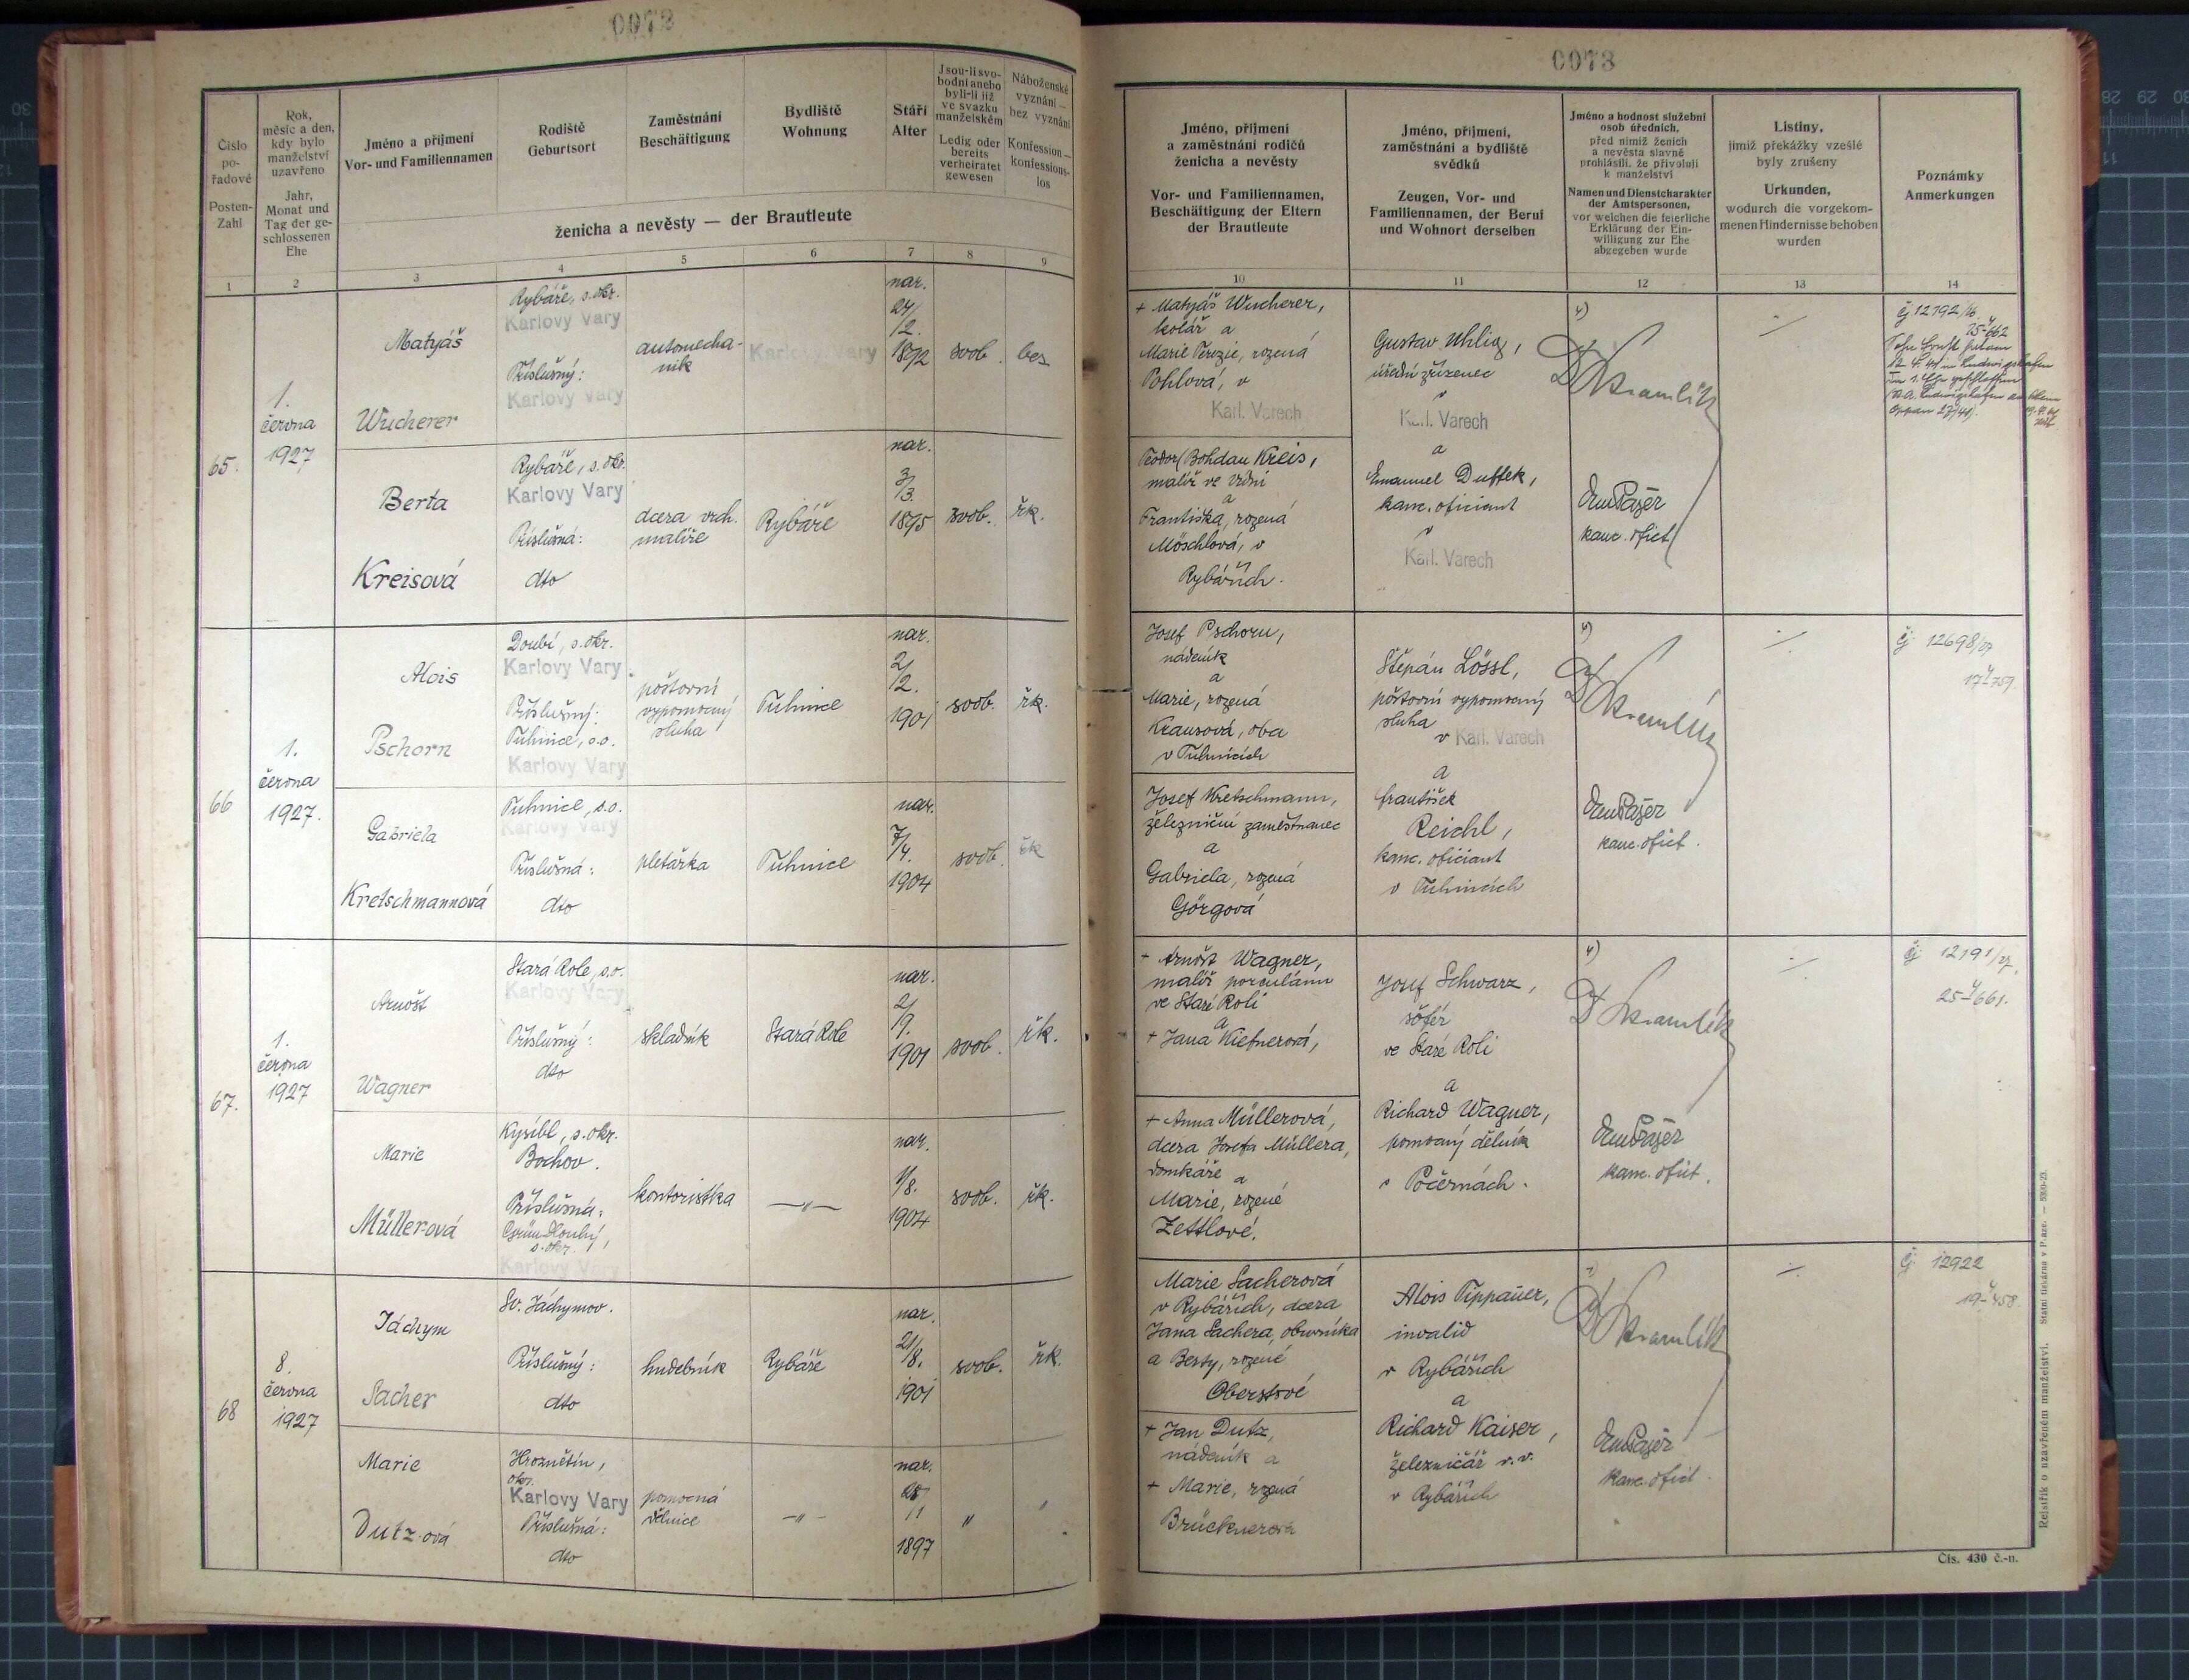 0073
Číslo
po-
řadové
Posten-
Zahl
Rok,
měsíc a den,
kdy bylo
manželství
uzavřeno
Jahr,
Monat und
Tag der ge-
schlossenen
Ehe
Jméno a příjmení
Vor- und Familiennamen
Rodiště
Geburtsort
Zaměstnání
Beschäftigung
Bydliště
Wohnung
Stáří
Alter
Jsou-li svo-
bodni anebo
byli-li již
ve svazku
manželském
Ledig oder
bereits
verheiratet
gewesen
Náboženské
vyznání —
bez vyznání
Konfession —
konfessions-
los
ženicha a nevěsty — der Brautleute
1 2 3 4 5 6 7 8 9
65.
1.
června
1927
Matyáš
Wucherer
Rybáře, s. okr.
Karlovy Vary
Příslušný:
Karlovy Vary
automecha-
nik
Karlovy Vary
nar.
24/
/2.
1872
svob.
bez
Berta
Kreisová
Rybáře, s. okr.
Karlovy Vary
Příslušná:
dto
dcera vrch.
malíře
Rybáře
nar.
3/
/3.
1875
svob.
řk.
66
1.
června
1927.
Alois
Pschorn
Doubí, s. okr.
Karlovy Vary
Příslušný:
Tuhnice, s.o.
Karlovy Vary
poštovní
výpomocný
sluha
Tuhnice
nar.
2/
/2.
1901
svob.
řk.
Gabriela
Kretschmannová
Tuhnice, s.o.
Karlovy Vary
Příslušná:
dto
pletařka
Tuhnice
nar.
7/
/4.
1904
svob.
řk
67.
1.
června
1927
Arnošt
Wagner
Stará Role, s.o.
Karlovy Vary
Příslušný:
dto
skladník
Stará Role
nar.
2/
/9.
1901
svob.
řk.
Marie
Müllerová
Kysibl, s. okr.
Bochov.
Příslušná:
Grün Dlouhý,
s. okr.
Karlovy Vary
kontoristka
—"—
nar.
1/
/8.
1904
svob.
řk.
68
8.
června
1927
Jáchym
Sacher
Sv. Jáchymov.
Příslušný:
dto
hudebník
Rybáře
nar.
21/
/8.
1901
svob.
řk.
Marie
Dutz-ová
Hroznětín,
okr.
Karlovy Vary
Příslušná:
dto
pomocná
dělnice
—"—
nar.
/1
1897
"
"
0073
Jméno, příjmení
a zaměstnání rodičů
ženicha a nevěsty
Vor- und Familiennamen,
Beschäftigung der Eltern
der Brautleute
Jméno, příjmení,
zaměstnání a bydliště
svědků
Zeugen, Vor- und
Familiennamen, der Beruf
und Wohnort derselben
Jméno a hodnost služební
osob úředních,
před nimiž ženich
a nevěsta slavně
prohlásili, že přivolují
k manželství
Namen und Dienstcharakter
der Amtspersonen,
vor welchen die feierliche
Erklärung der Ein-
willigung zur Ehe
abgegeben wurde
Listiny,
jimiž překážky vzešlé
byly zrušeny
Urkunden,
wodurch die vorgekom-
menen Hindernisse behoben
wurden
Poznámky
Anmerkungen
10 11 12 13 14
+ Matyáš Wucherer,
kolář a
Marie Terezie, rozená
Pohlová, v
Karl. Varech
Gustav Uhlig,
úřední zřízenec
v
Karl. Varech
a
Emanuel Duffek,
kanc. oficiant
v
Karl. Varech
Dr Kramlík
kanc. ofict
Teodor (Bohdan Kreis,
malíř ve vrchní
a
Františka, rozená
Möschlová, v
Rybářích.
Josef Pschorn,
nádeník
a
Marie, rozená
Krausová, oba
v Tuhnicích
Štěpán Lössl,
poštovní výpomocný
sluha
v Karl. Varech
a
František
Reichl,
kanc. oficiant
v Tuhnicích
Dr Kramlík
kanc. ofict.
čj 12698/27
Josef Kretschmann,
železniční zaměstnanec
a
Gabriela, rozená
Görgová
+ Arnošt Wagner,
malíř porculánu
ve Staré Roli
a
+ Jana Kiefnerová,
Josef Schwarz,
šofér
ve Staré Roli
a
Richard Wagner,
pomocný dělník
v Počernách.
Dr Kramlík
kanc. ofict.
čj 12191/27.
+ Anna Müllerová,
dcera Josefa Müllera,
domkáře a
Marie, rozené
Zettlové.
Marie Sacherová
v Rybářích, dcera
Jana Sachera, obuvníka
a Berty, rozené
Oberstové
Alois Tippauer,
invalid
v Rybářích
a
Richard Kaiser,
železničář v.v.
v Rybářích
Dr Kramlík
kanc. ofict.
čj 12922
+ Jan Dutz,
nádeník a
+ Marie, rozená
Brücknerová
Rejstřík o uzavřeném manželství. Státní tiskárna v Praze. — 5300-25.
Čís. 430 č.-n.